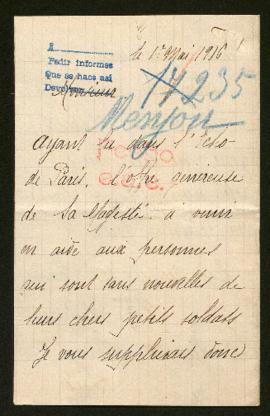 le 1er Mai 1916
1
Pedir informes
Que se hace así
Devolver
Monsieur
17235
Menjou
Ayant lu dans l'Echo
de Paris, l'offre généreuse
de Sa Majesté à venir
en aide aux personnes
qui sont sans nouvelles de
leurs chers petits soldats
Je vous supplierais donc